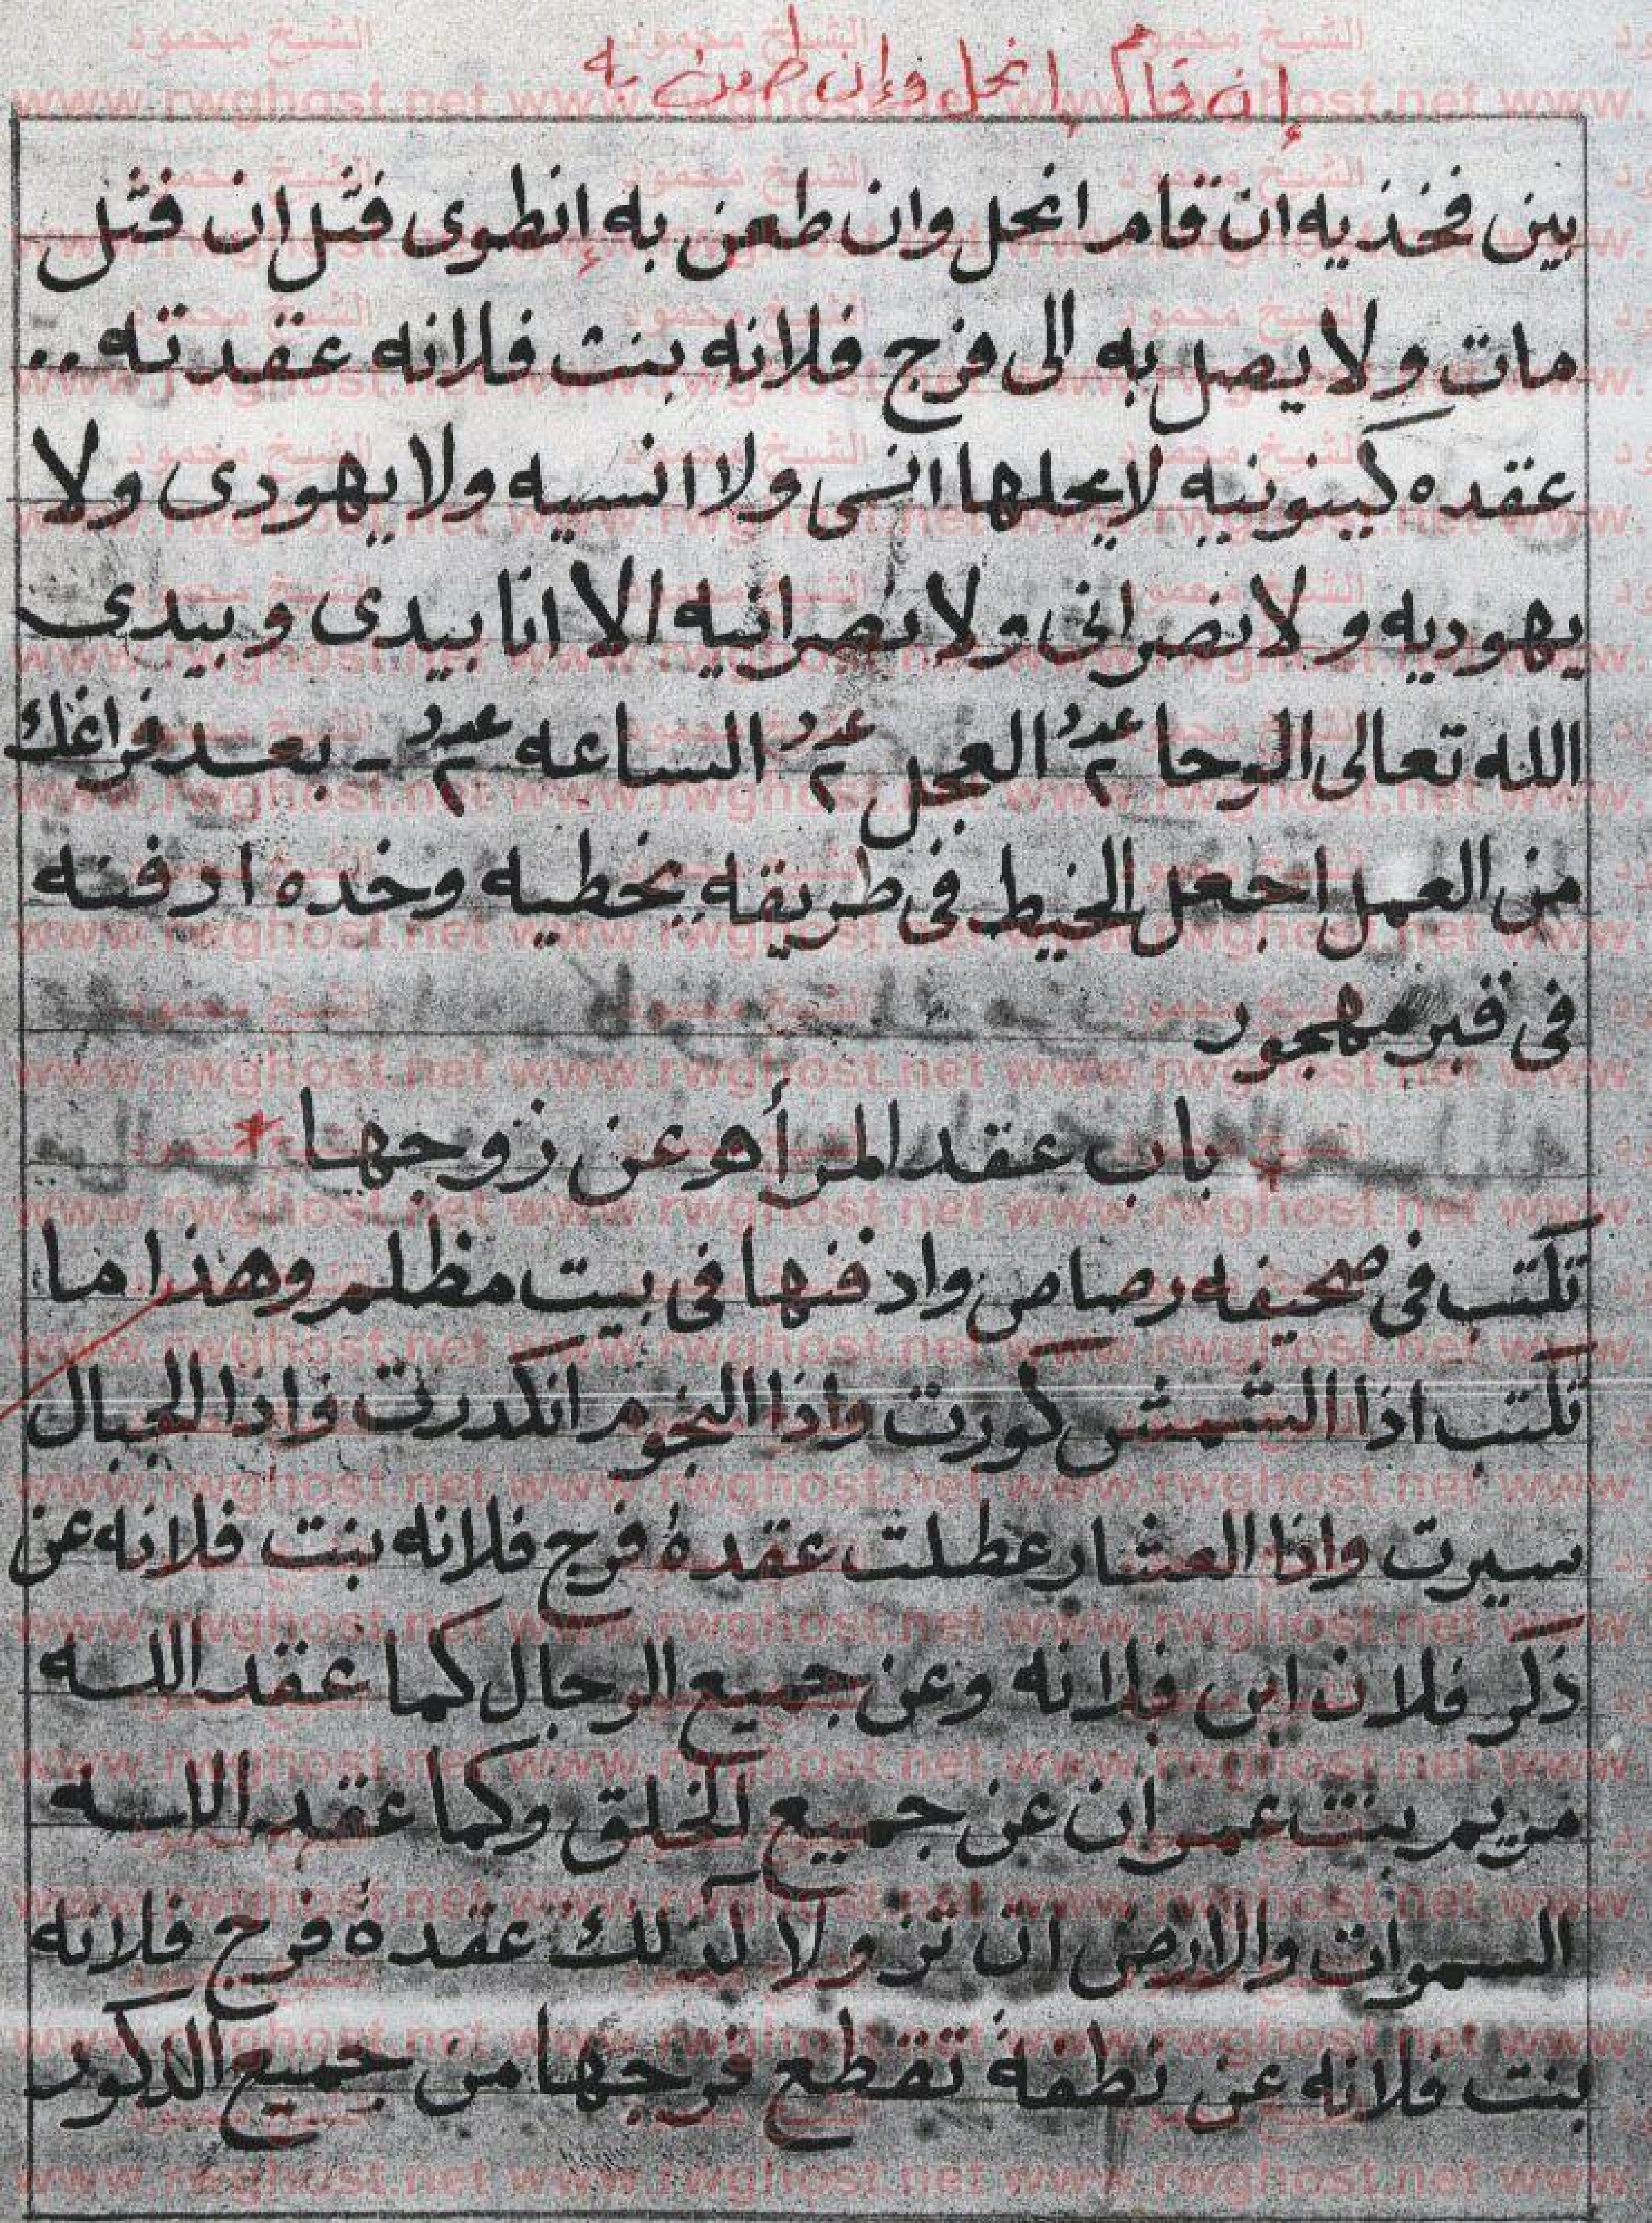 إن قام انحل وإن طعن به
بين فخذيه ان قام انحل وان طعن به إنطوى فتل ان فتل
مات ولا يصل به الى فرج فلانه بنت فلانه عقدته ..
عقده كينونيه لا يحلها انسى ولا انسيه ولا يهودى ولا
يهوديه ولا نصرانى ولا نصرانيه الا انا بيدى وبيدى
الله تعالى الوحا عدد ٢ العجل عدد ٢ الساعه عدد ٢ - بعد فراغك
من العمل اجعل الخيط فى طريقه يخطيه وخده ادفنه
فى قبر مهجور
باب عقد المرأه عن زوجها
تكتب فى صحيفه رصاص وادفنها فى بيت مظلم وهذا ما
تكتب اذا الشمش كورت واذا النجوم انكدرت واذا الجبال
سيرت واذا العشار عطلت عقدة فرج فلانه بنت فلانه عن
ذكر فلان ابن فلانه وعن جميع الرجال كما عقد الله
مريم بنت عمران عن جميع الخلق وكما عقد الله
السموات والارض ان تزولا لذلك عقدة فرج فلانه
بنت فلانه عن نطفة تقطع فرجها من جميع الذكور
الشيخ محمود
www.rwghost.net